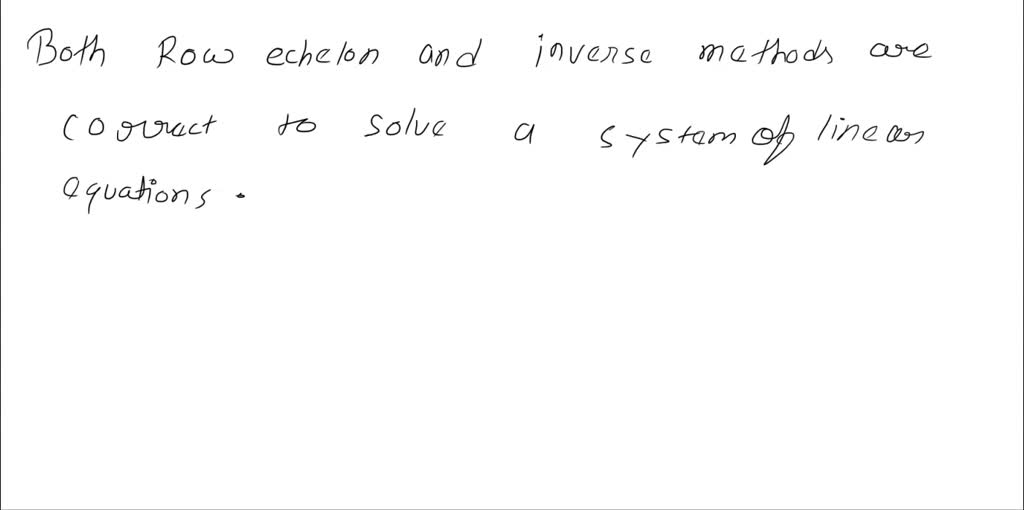 Both Row echelon and inverse methods are
correct to solve a system of linear
equations.